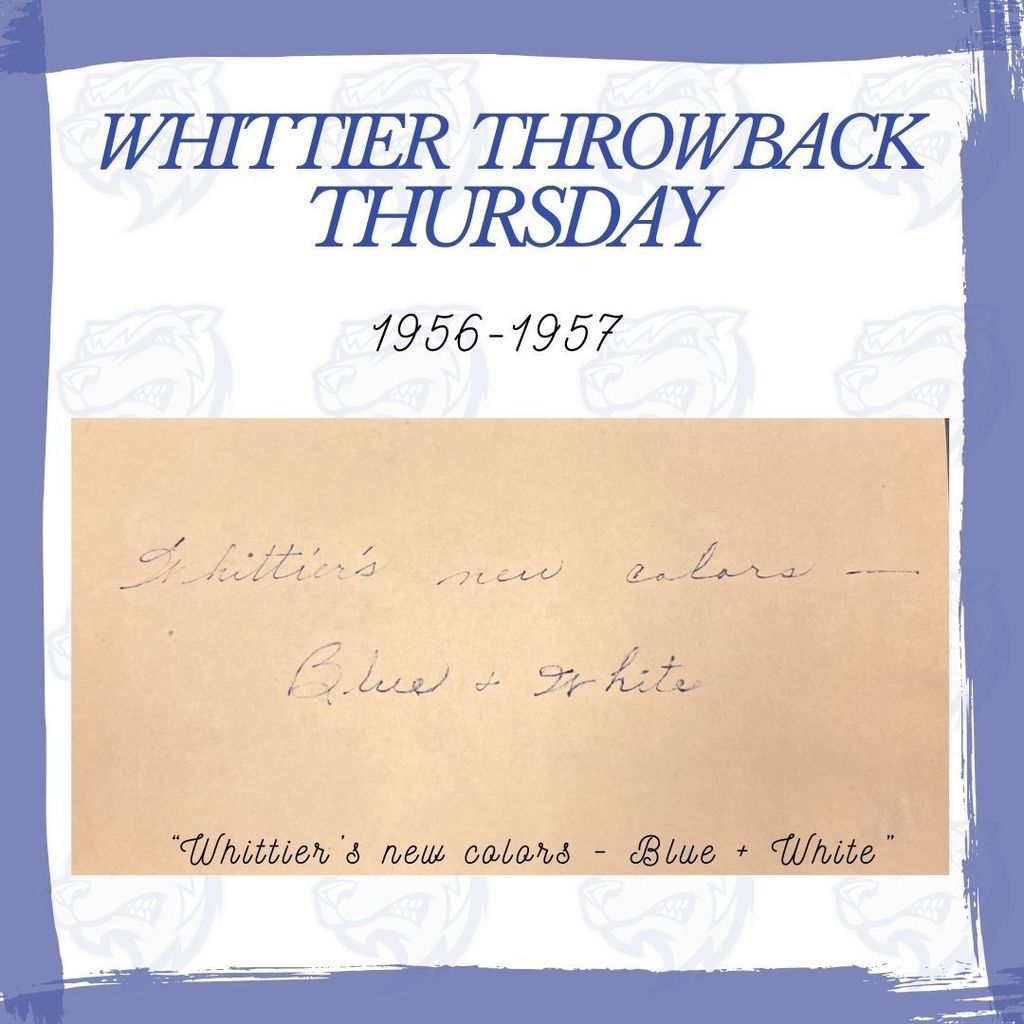 WHITTIER THROWBACK
THURSDAY
1956-1957
Whittier's new colors —
Blue + White
“Whittier's new colors - Blue + White”